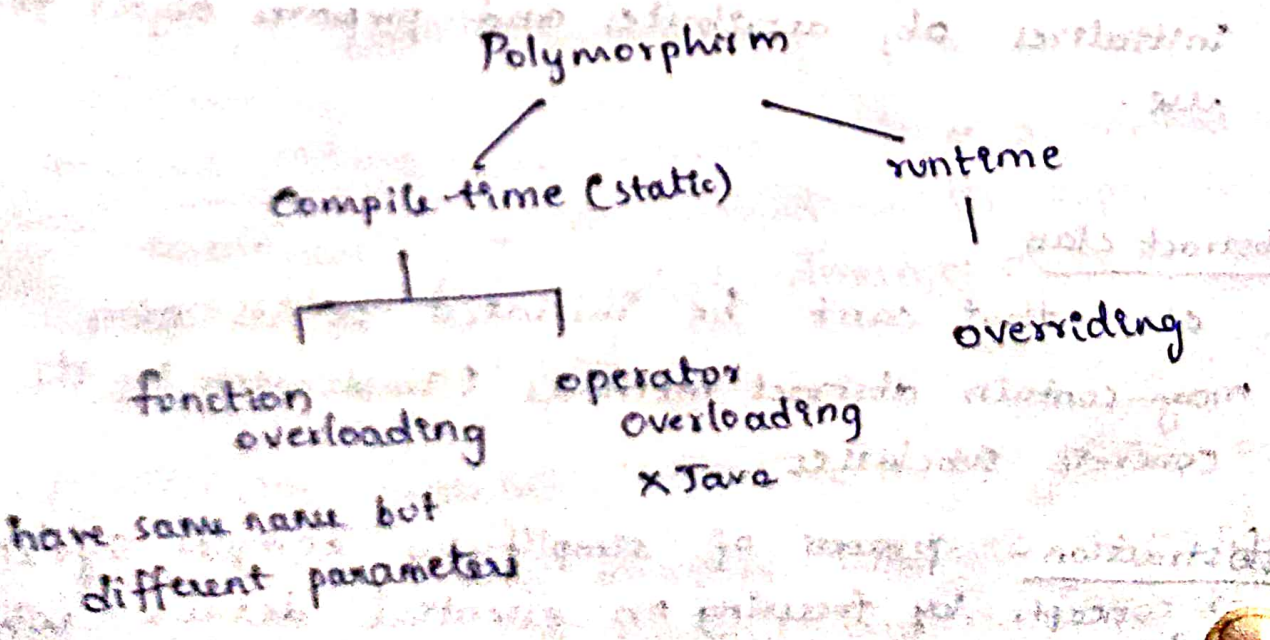 Polymorphism
Compile-time (static)
runtime
overriding
function
overloading
operator
overloading
x Java
have same name but
different parameters